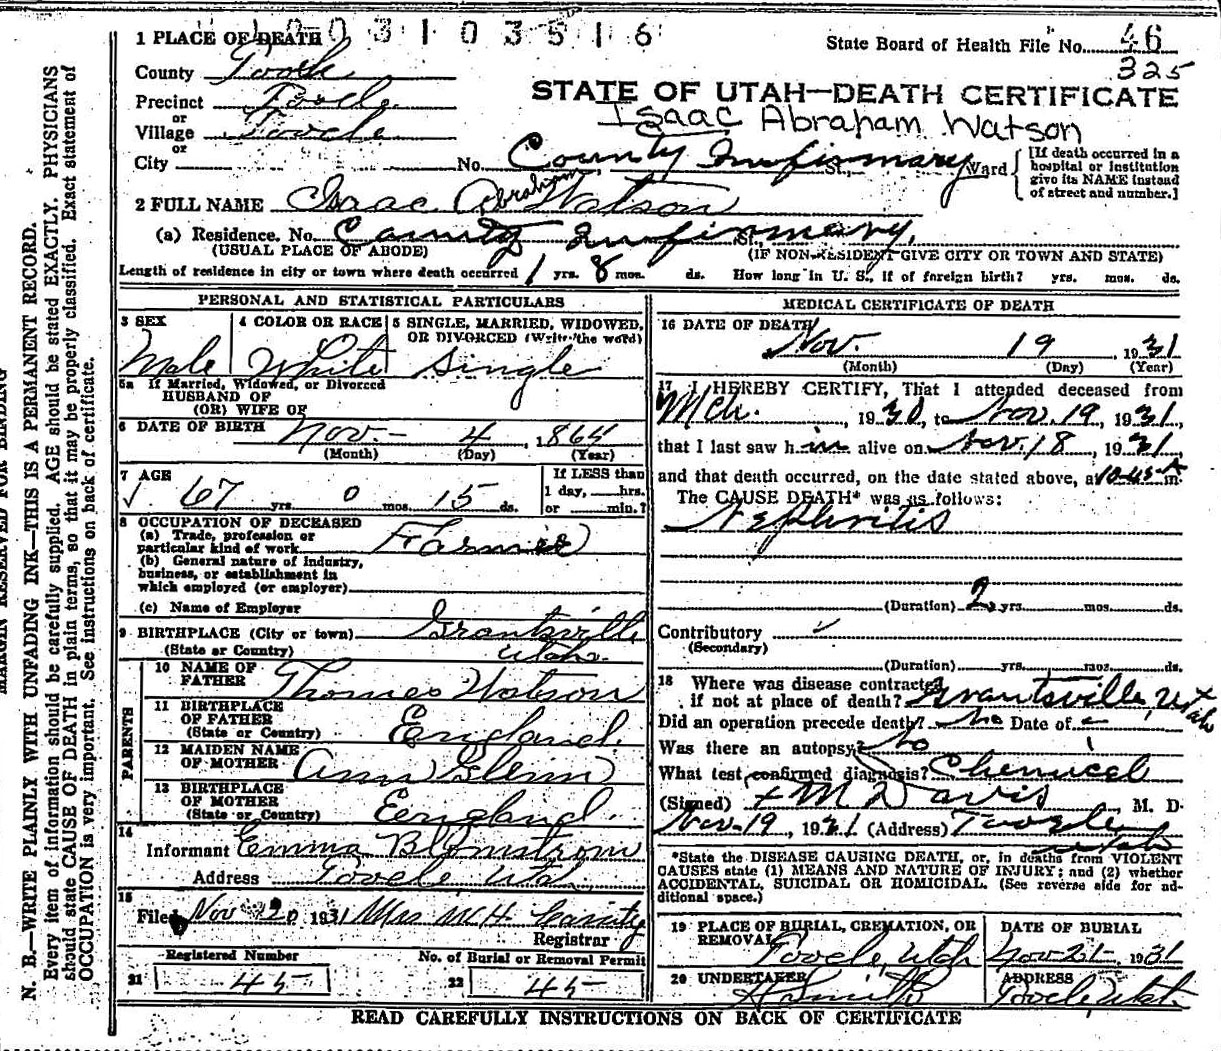 1003103516
1 PLACE OF DEATH
State Board of Health File No. 46
325
County Tooele
Precinct Tooele
or
Village Tooele
or
City
STATE OF UTAH—DEATH CERTIFICATE
Isaac Abraham Watson
No. County Infirmary St., Ward
[If death occurred in a hospital or institution give its NAME instead of street and number.]
2 FULL NAME Isaac Abraham Watson
(a) Residence. No. County Infirmary, St.,
(USUAL PLACE OF ABODE) (IF NON-RESIDENT GIVE CITY OR TOWN AND STATE)
Length of residence in city or town where death occurred 1 yrs. 8 mos. ds. How long in U. S., if of foreign birth? yrs. mos. ds.
PERSONAL AND STATISTICAL PARTICULARS
3 SEX 4 COLOR OR RACE 5 SINGLE, MARRIED, WIDOWED,
OR DIVORCED (Write the word)
Male White Single
5a If Married, Widowed, or Divorced
HUSBAND OF
(OR) WIFE OF
6 DATE OF BIRTH Nov. - 4, 1864
(Month) (Day) (Year)
7 AGE If LESS than
1 day, hrs.
√ 67 yrs. 0 mos. 15 ds. or min.?
8 OCCUPATION OF DECEASED
(a) Trade, profession or
particular kind of work Farmer
(b) General nature of industry,
business, or establishment in
which employed (or employer)
(c) Name of Employer
9 BIRTHPLACE (City or town) Grantsville
(State or Country) Utah.
PARENT
10 NAME OF
FATHER Thomas Watson
11 BIRTHPLACE
OF FATHER
(State or Country) England.
12 MAIDEN NAME
OF MOTHER Ann Glenn
13 BIRTHPLACE
OF MOTHER
(State or Country) England.
14
Informant Emma Blomstrom
Address Tooele, Utah
15
Filed Nov 20 1931 Mrs W. H.
Registrar
Registered Number No. of Burial or Removal Permit
21 45 22 45
MEDICAL CERTIFICATE OF DEATH
16 DATE OF DEATH
Nov. 19, 1931
(Month) (Day) (Year)
17 I HEREBY CERTIFY, That I attended deceased from
Mch., 1930, to Nov. 19, 1931,
that I last saw him alive on Nov. 18, 1931,
and that death occurred, on the date stated above, at 10-45 A m.
The CAUSE DEATH* was as follows:
Nephritis
(Duration) 2 yrs. mos. ds.
Contributory √
(Secondary)
(Duration) yrs. mos. ds.
18 Where was disease contracted
if not at place of death? Grantsville, Utah
Did an operation precede death? No Date of -
Was there an autopsy? No
What test confirmed diagnosis? Chemical
(Signed) M Davis, M. D.
Nov. 19, 1931 (Address) Tooele
Utah
*State the DISEASE CAUSING DEATH, or, in deaths from VIOLENT
CAUSES state (1) MEANS AND NATURE OF INJURY; and (2) whether
ACCIDENTAL, SUICIDAL OR HOMICIDAL. (See reverse side for additional space.)
19 PLACE OF BURIAL, CREMATION, OR
REMOVAL Tooele, Utah
DATE OF BURIAL
Nov-21- 1931
20 UNDERTAKER Smith
ADDRESS
Tooele, Utah
READ CAREFULLY INSTRUCTIONS ON BACK OF CERTIFICATE
MARGIN RESERVED FOR BINDING
N. B.—WRITE PLAINLY WITH UNFADING INK—THIS IS A PERMANENT RECORD.
Every item of information should be carefully supplied. AGE should be stated EXACTLY. PHYSICIANS
should state CAUSE OF DEATH in plain terms, so that it may be properly classified. Exact statement of
OCCUPATION is very important. See instructions on back of certificate.